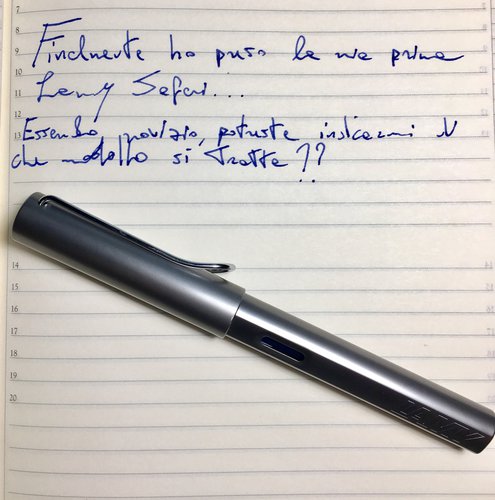 7
8
9
10
11
12
13
Finalmente ho preso la mia prima
Lamy Safari...
Essendo novizio, potreste indicarmi di
che modello si tratta??
14
15
16
17
18
19
20
LAMY